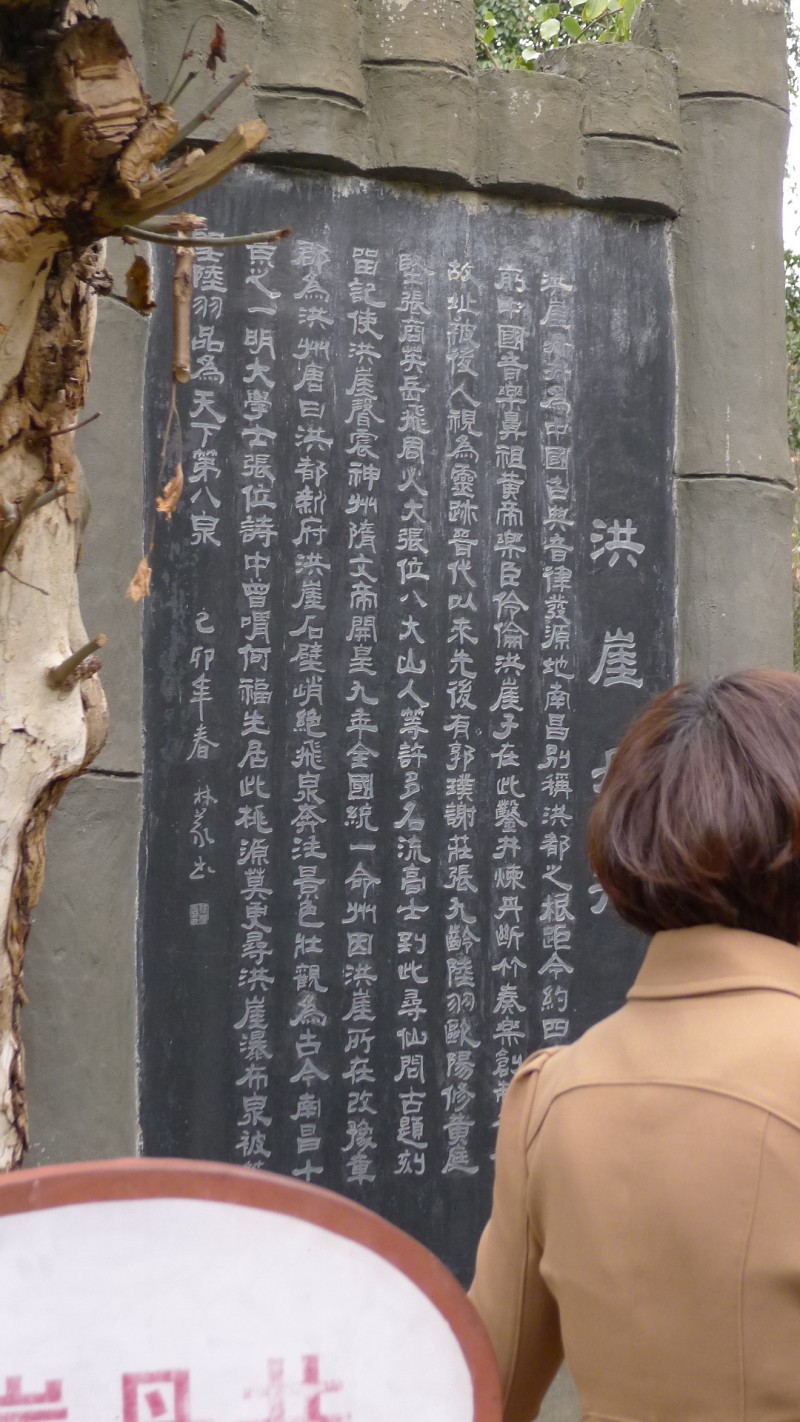 洪崖丹井
洪崖丹井為中國古典音律發源地南昌別稱洪都之根距今約四
中國音樂鼻祖黃帝樂臣伶倫洪崖子在此鑿井煉丹斷竹奏樂創制
故址被後人視為靈跡晉代以來先後有郭璞謝莊張九齡陸羽歐陽修黃庭
堅張商英岳飛周必大張位八大山人等許多名流高士到此尋仙問古題刻
留記使洪崖聲震神州隋文帝開皇九年全國統一命州因洪崖所在改豫章
郡為洪州唐曰洪都新府洪崖石壁峭絕飛泉奔注景色壯觀為古今南昌十
景之一明大學士張位詩中曾喟何福生居此桃源莫更尋洪崖瀑布泉被
聖陸羽品為天下第八泉
己卯年春
丹井